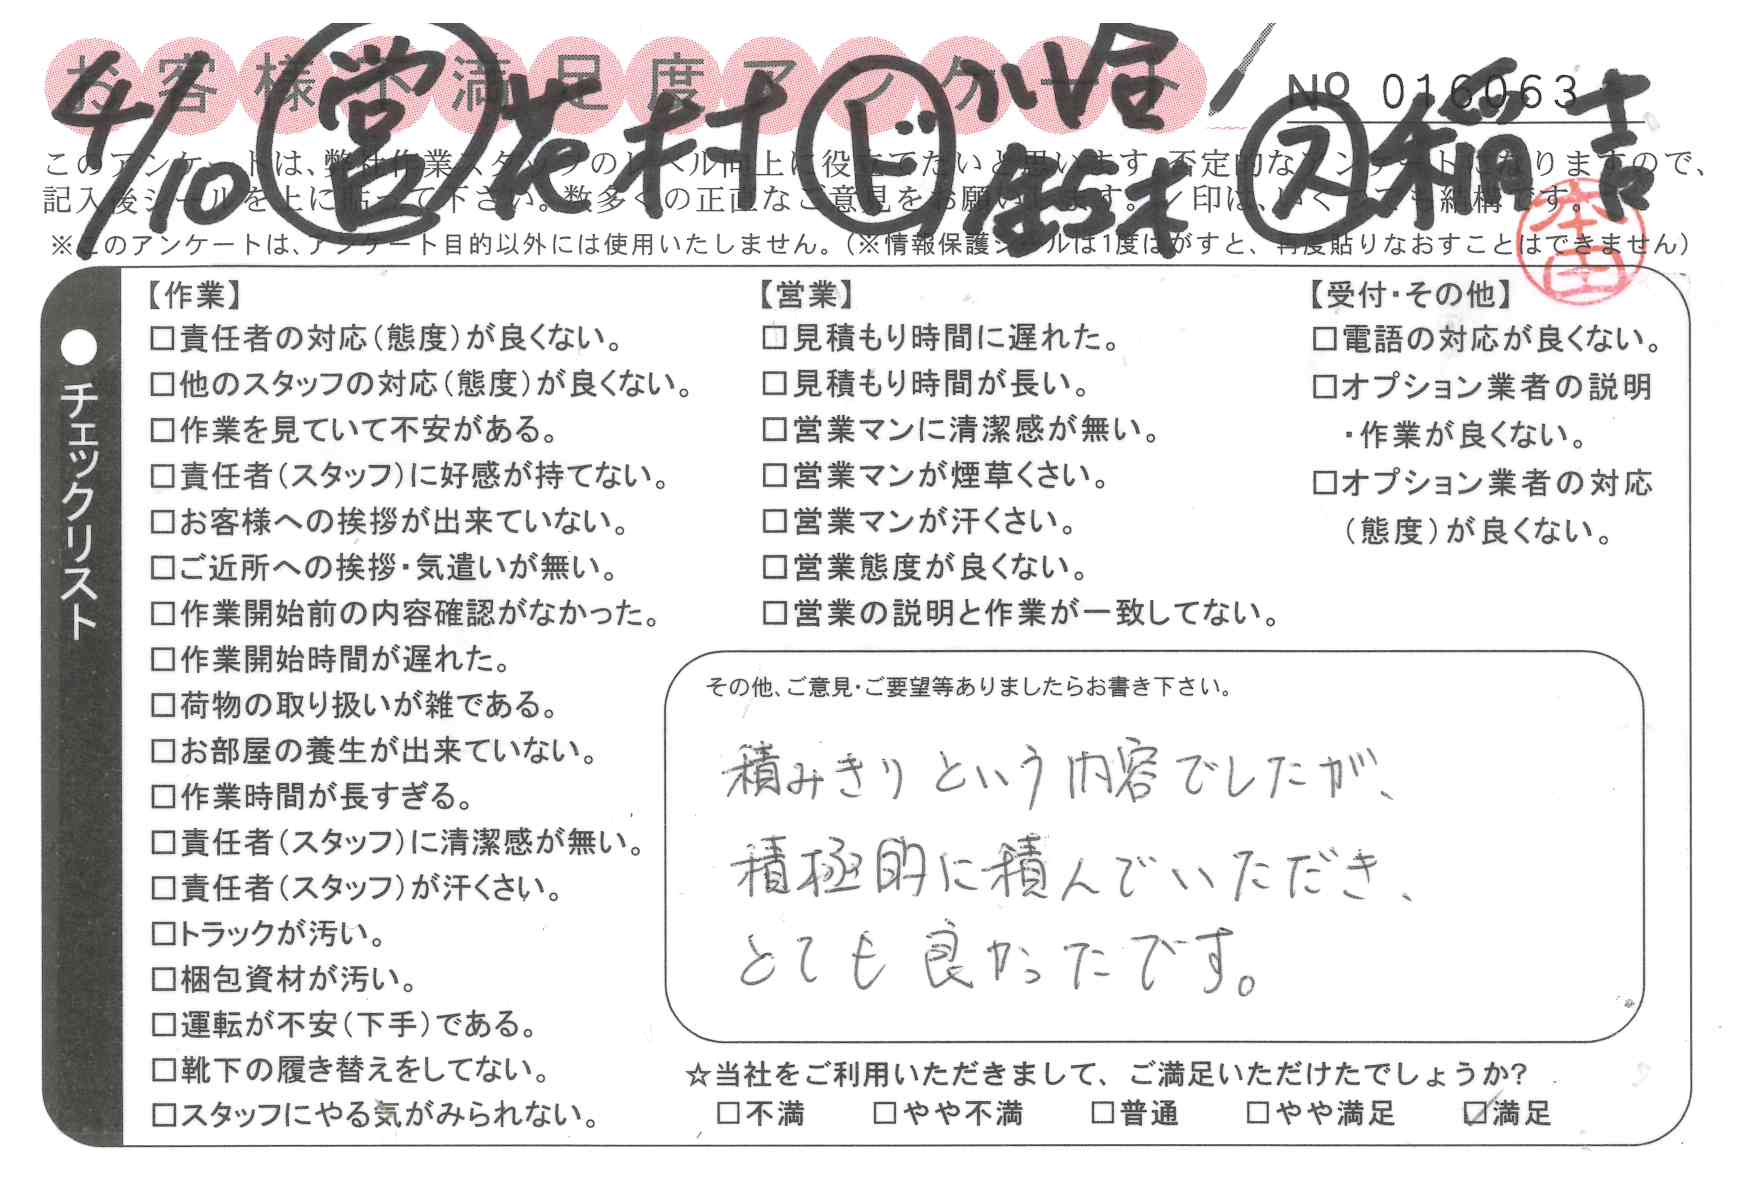 お客様不満足度アンケート
NO 016063
4/10 営 花村 ド 小沼 鈴木 ス 稲吉
このアンケートは、弊社作業スタッフのレベル向上に役立てたいと思います。否定的なアンケートになりますので、
記入後シールを上に貼って下さい。数多くの正直なご意見をお願いします。✓印は、いくつでも結構です。
※このアンケートは、アンケート目的以外には使用いたしません。(※情報保護シールは1度はがすと、再度貼りなおすことはできません)
本田
●チェックリスト
【作業】
□責任者の対応(態度)が良くない。
□他のスタッフの対応(態度)が良くない。
□作業を見ていて不安がある。
□責任者(スタッフ)に好感が持てない。
□お客様への挨拶が出来ていない。
□ご近所への挨拶・気遣いが無い。
□作業開始前の内容確認がなかった。
□作業開始時間が遅れた。
□荷物の取り扱いが雑である。
□お部屋の養生が出来ていない。
□作業時間が長すぎる。
□責任者(スタッフ)に清潔感が無い。
□責任者(スタッフ)が汗くさい。
□トラックが汚い。
□梱包資材が汚い。
□運転が不安(下手)である。
□靴下の履き替えをしてない。
□スタッフにやる気がみられない。
【営業】
□見積もり時間に遅れた。
□見積もり時間が長い。
□営業マンに清潔感が無い。
□営業マンが煙草くさい。
□営業マンが汗くさい。
□営業態度が良くない。
□営業の説明と作業が一致してない。
【受付・その他】
□電語の対応が良くない。
□オプション業者の説明
・作業が良くない。
□オプション業者の対応
(態度)が良くない。
その他、ご意見・ご要望等ありましたらお書き下さい。
積みきりという内容でしたが、
積極的に積んでいただき、
とても良かったです。
☆当社をご利用いただきまして、ご満足いただけたでしょうか?
□不満 □やや不満 □普通 □やや満足 ☑満足